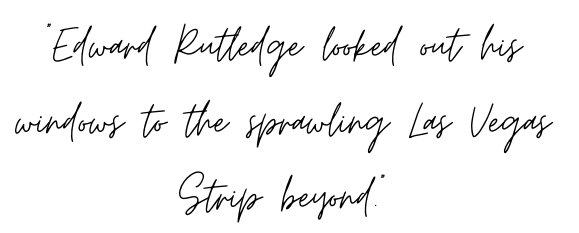 "Edward Rutledge looked out his
windows to the sprawling Las Vegas
Strip beyond."